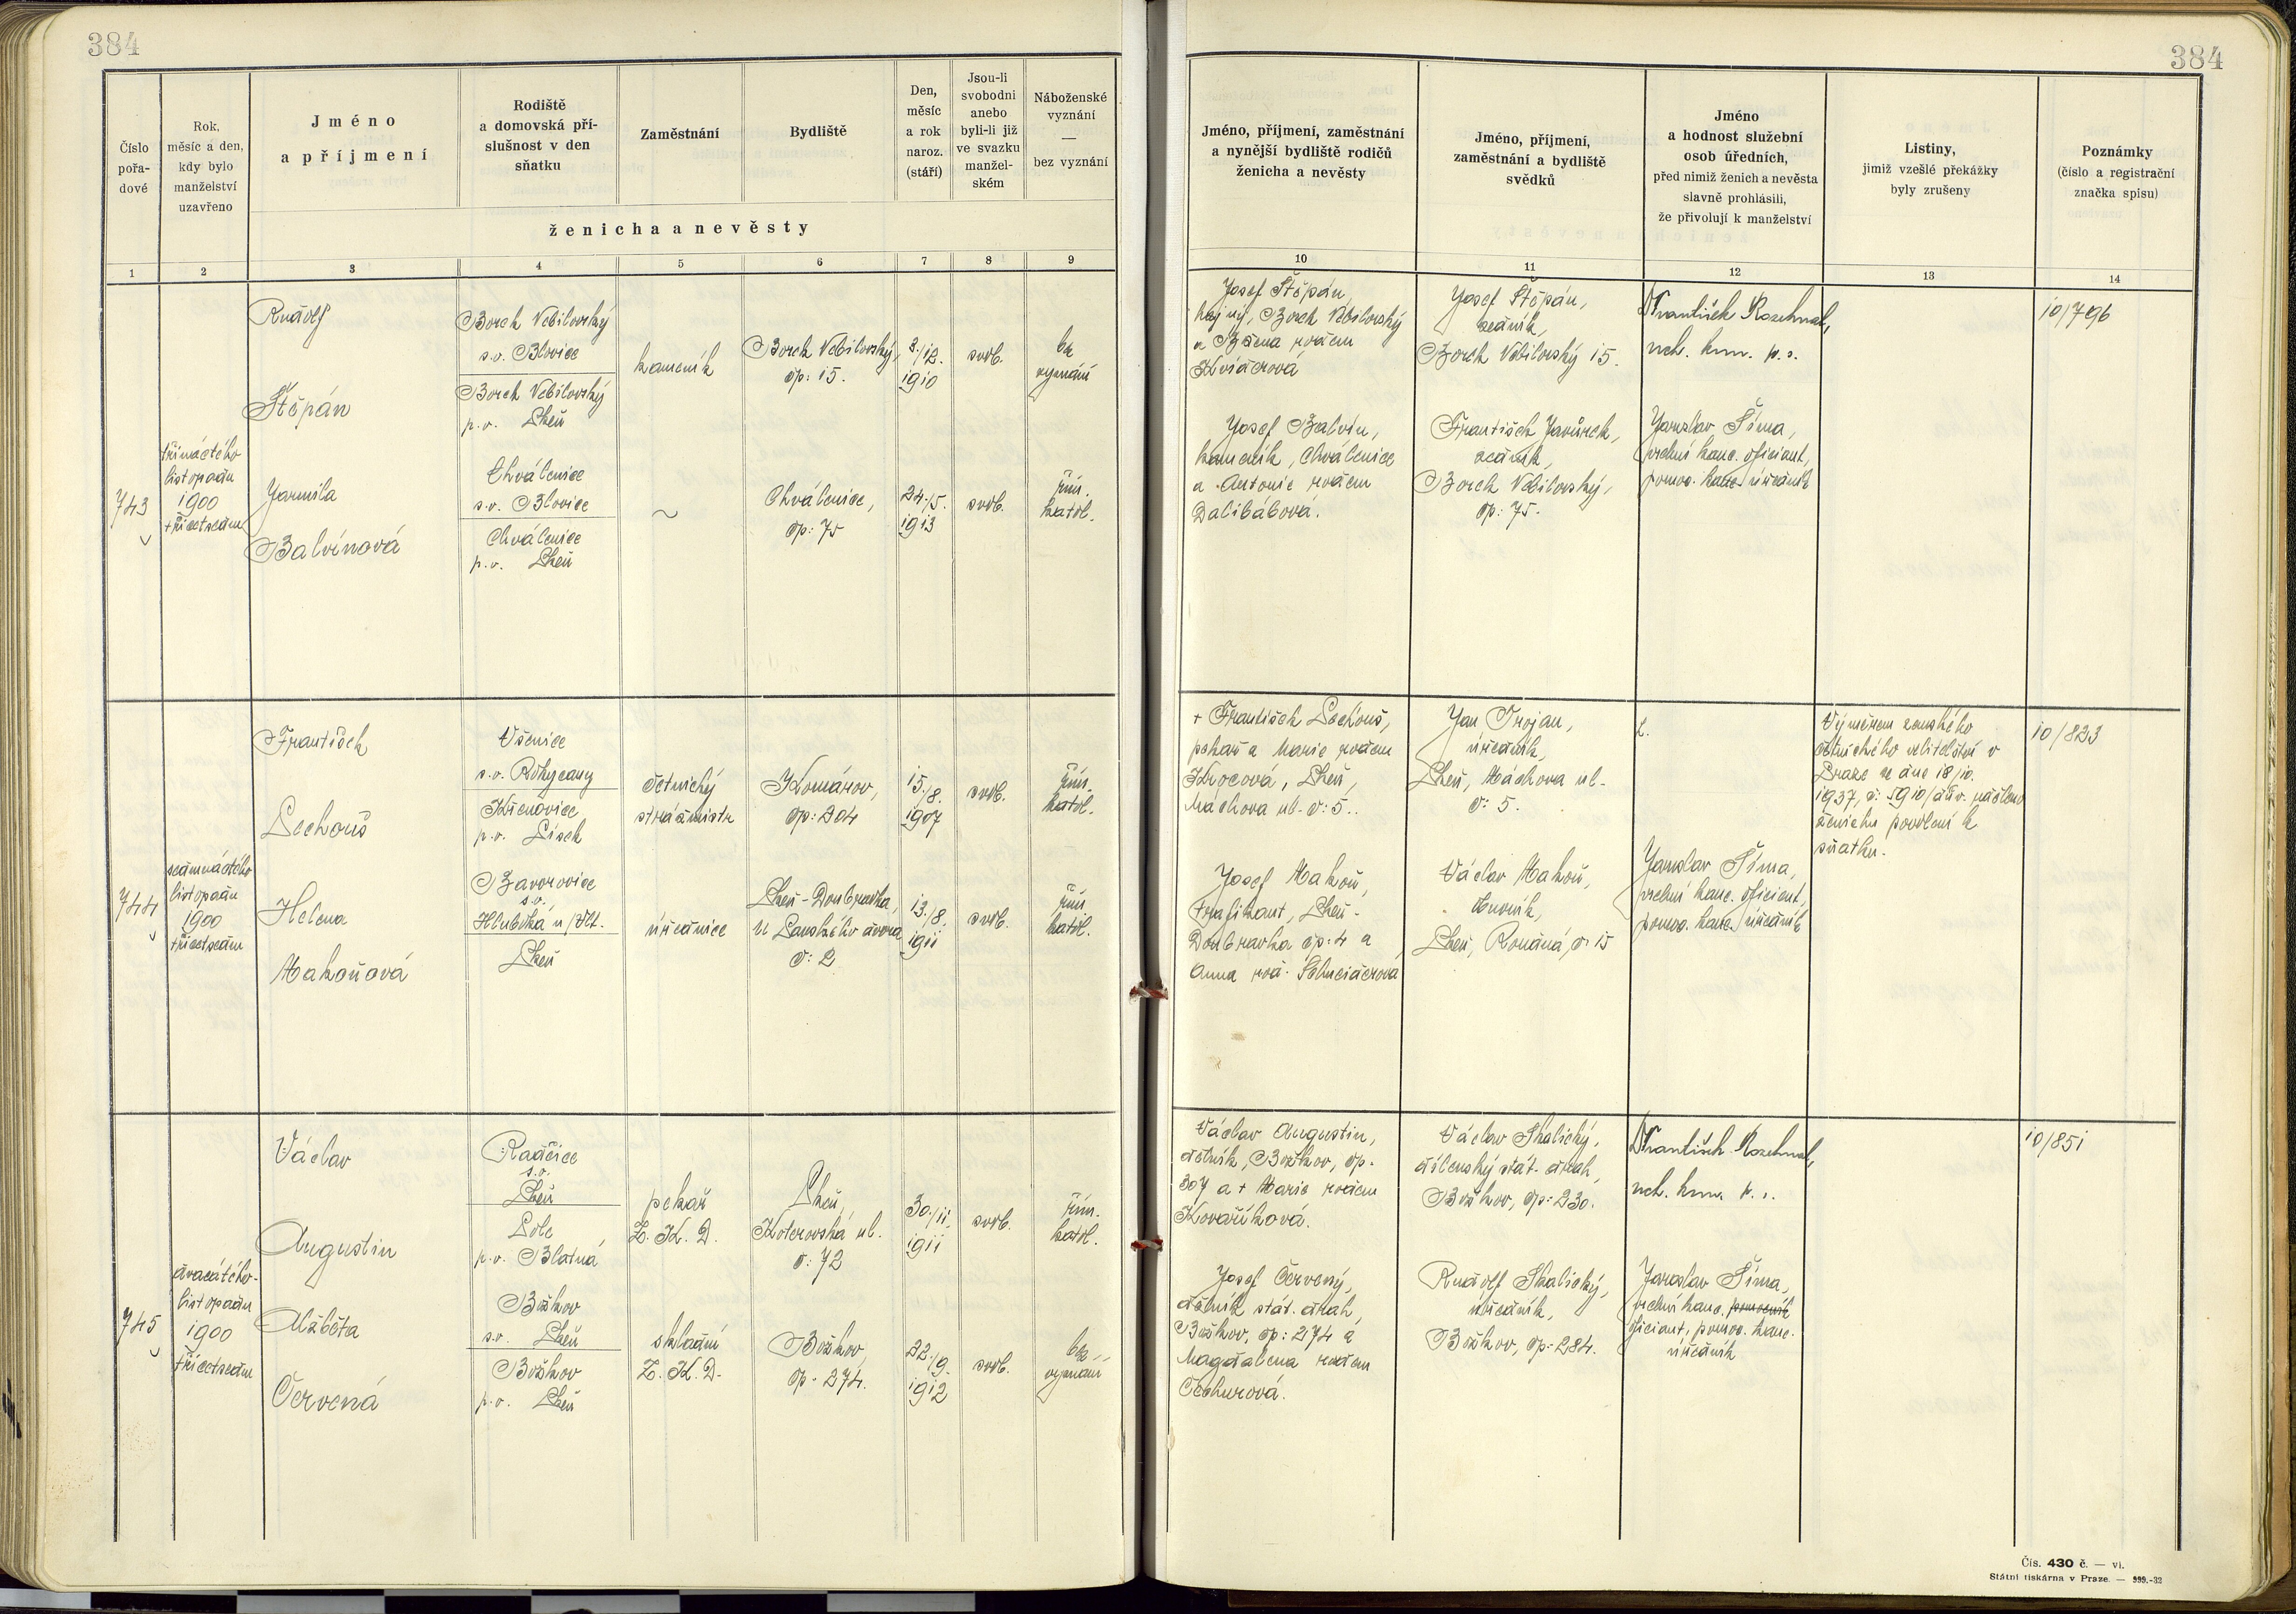 384
384
Číslo
pořa-
dové
Rok,
měsíc a den,
kdy bylo
manželství
uzavřeno
Jméno
a příjmení
Rodiště
a domovská pří-
slušnost v den
sňatku
Zaměstnání
Bydliště
Den,
měsíc
a rok
naroz.
(stáří)
Jsou-li
svobodni
anebo
byli-li již
ve svazku
manžel-
ském
Náboženské
vyznání
—
bez vyznání
ženicha a nevěsty
Jméno, příjmení, zaměstnání
a nynější bydliště rodičů
ženicha a nevěsty
Jméno, příjmení,
zaměstnání a bydliště
svědků
Jméno
a hodnost služební
osob úředních,
před nimiž ženich a nevěsta
slavně prohlásili,
že přivolují k manželství
Listiny,
jimiž vzešlé překážky
byly zrušeny
Poznámky
(číslo a registrační
značka spisu)
1 2 3 4 5 6 7 8 9 10 11 12 13 14
743
třináctého
listopadu
1900
třicetsedm
Rudolf
Štěpán
Borek Vebilovský
s.o. Blovice
Borek Vebilovský
p.o. Plzeň
kameník
Borek Vebilovský,
čp: 15.
3./12.
1910
svob.
bez
vyznání
Jarmila
Balvínová
Chválenice
s.o. Blovice
Chválenice
p.o. Plzeň
~
Chválenice,
čp: 75
24./5.
1913
svob.
řím.
katol.
Josef Štěpán,
hajný, Borek Vebilovský
a Božena rodem
Josef Balvín,
kameník, Chválenice
a Antonie rodem
Dalibábová.
Josef Štěpán,
zedník,
Borek Vebilovský 15.
František Javůrek,
zedník,
Borek Vebilovský,
čp: 75.
František Rozehnal,
p. s.
Jaroslav Šíma,
vrchní kanc. oficiant,
pomoc. kanc. úředník
10/796
744
sedmnáctého
listopadu
1900
třicetsedm
František
Lechouš
Všenice
s.o. Rokycany
Křenovice
p.o. Písek
četnický
strážmistr
Komárov,
čp: 204
15./8.
1907
svob.
řím.
katol.
Helena
Makoňová
Zavorovice
s.o.
Hluboká n/Vlt.
Plzeň
úřednice
Plzeň-Doubravka,
U Panského dvora
č: 2
13./8.
1911
svob.
řím
katol.
+ František Lechouš,
pekař a Marie rodem
Krocová, Plzeň,
Máchova ul. č: 5.
Josef Makoň,
trafikant, Plzeň-
Doubravka čp: 4 a
Anna roz.
Jan Trojan,
úředník,
Plzeň, Máchova ul.
č: 5.
Václav Makoň,
Plzeň, č: 15
Jaroslav Šíma,
vrchní kanc. oficient,
pomoc. kanc. úředník
Výměrem zemského
četnického velitelství v
Praze ze dne 18/10.
1937, č: 5910/ uděleno
ženichu povolení k
sňatku.
10/823
745
dvacátého
listopadu
1900
třicetsedm
Václav
Augustin
Radčice
s.o.
Plzeň
Lole
p.o. Blatná
pekař
Z. K. D.
Plzeň,
Koterovská ul.
č: 72
30./11.
1911
svob.
řím.
katol.
Alžběta
Červená
Božkov
s.o. Plzeň
Božkov
p.o. Plzeň
skladní
Z. K. D.
Božkov,
čp. 274.
22./9.
1912
svob.
bez
vyznání
Václav Augustin,
dělník, Božkov, čp.
307 a + Marie rodem
Kovaříková.
Josef Červený,
dělník stát. drah,
Božkov, čp: 274 a
Magdalena rodem
Čechurová.
Václav Skalický,
dílenský stát. drah,
Božkov, čp: 230.
Rudolf Skalický,
úředník,
Božkov, čp. 284.
František Rozehnal,
Jaroslav Šíma,
vrchní kanc. pomocník
oficiant, pomoc. kanc.
úředník
10/851
Čís. 430 č. — vi.
Státní tiskárna v Praze. —